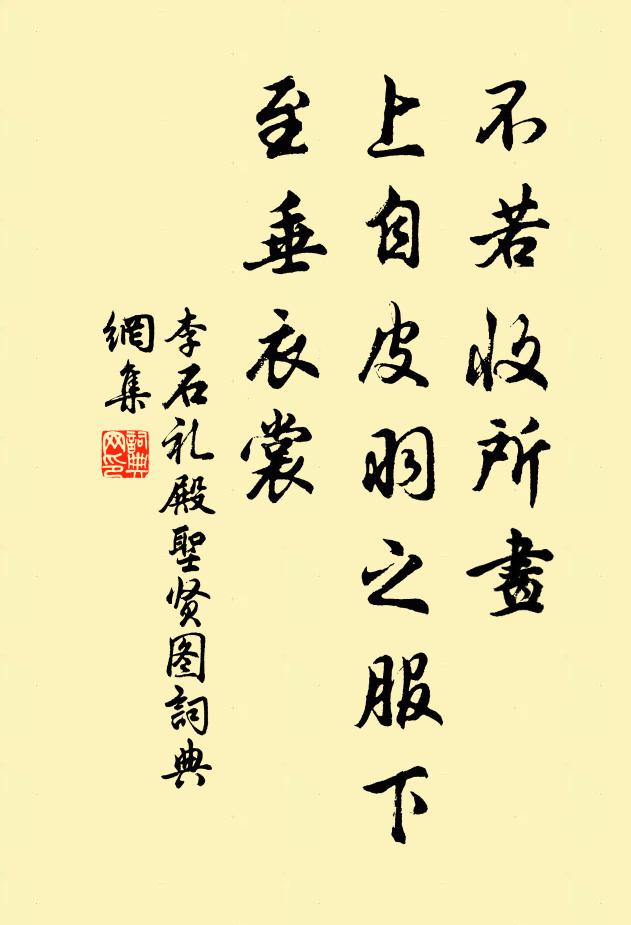 不若收所畫
上自皮羽之服下
至垂衣裳
李石礼殿聖贤图詞典
網集
詞典
网印